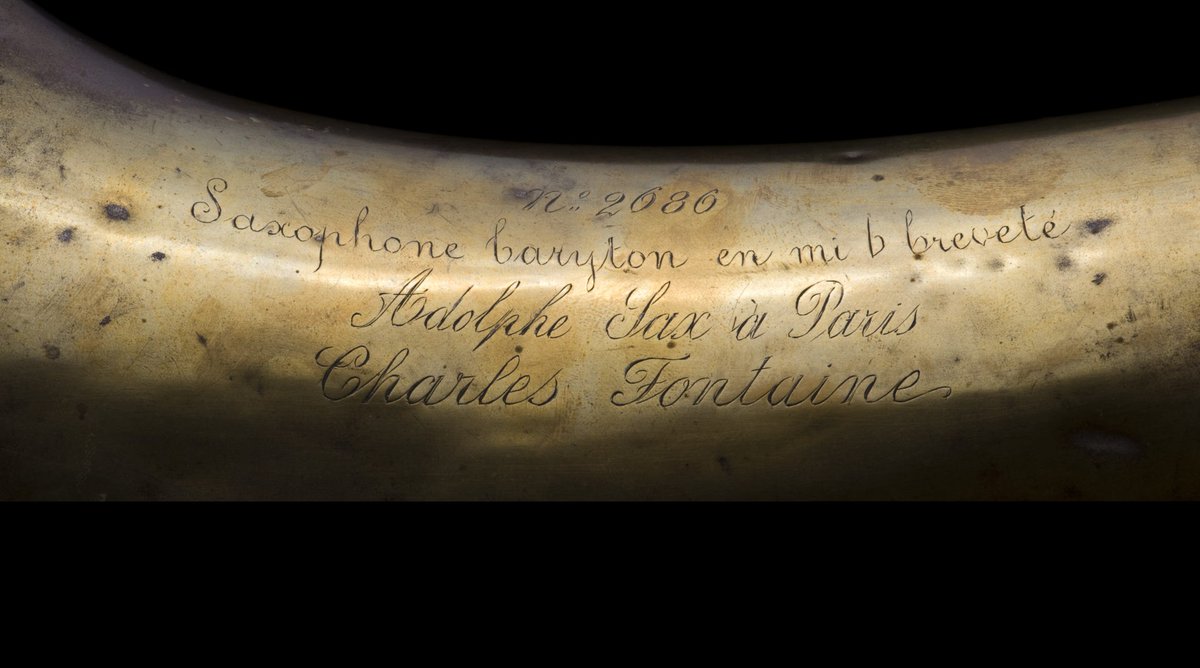 No. 2686
Saxophone baryton en mi b breveté
Adolphe Sax à Paris
Charles Fontaine